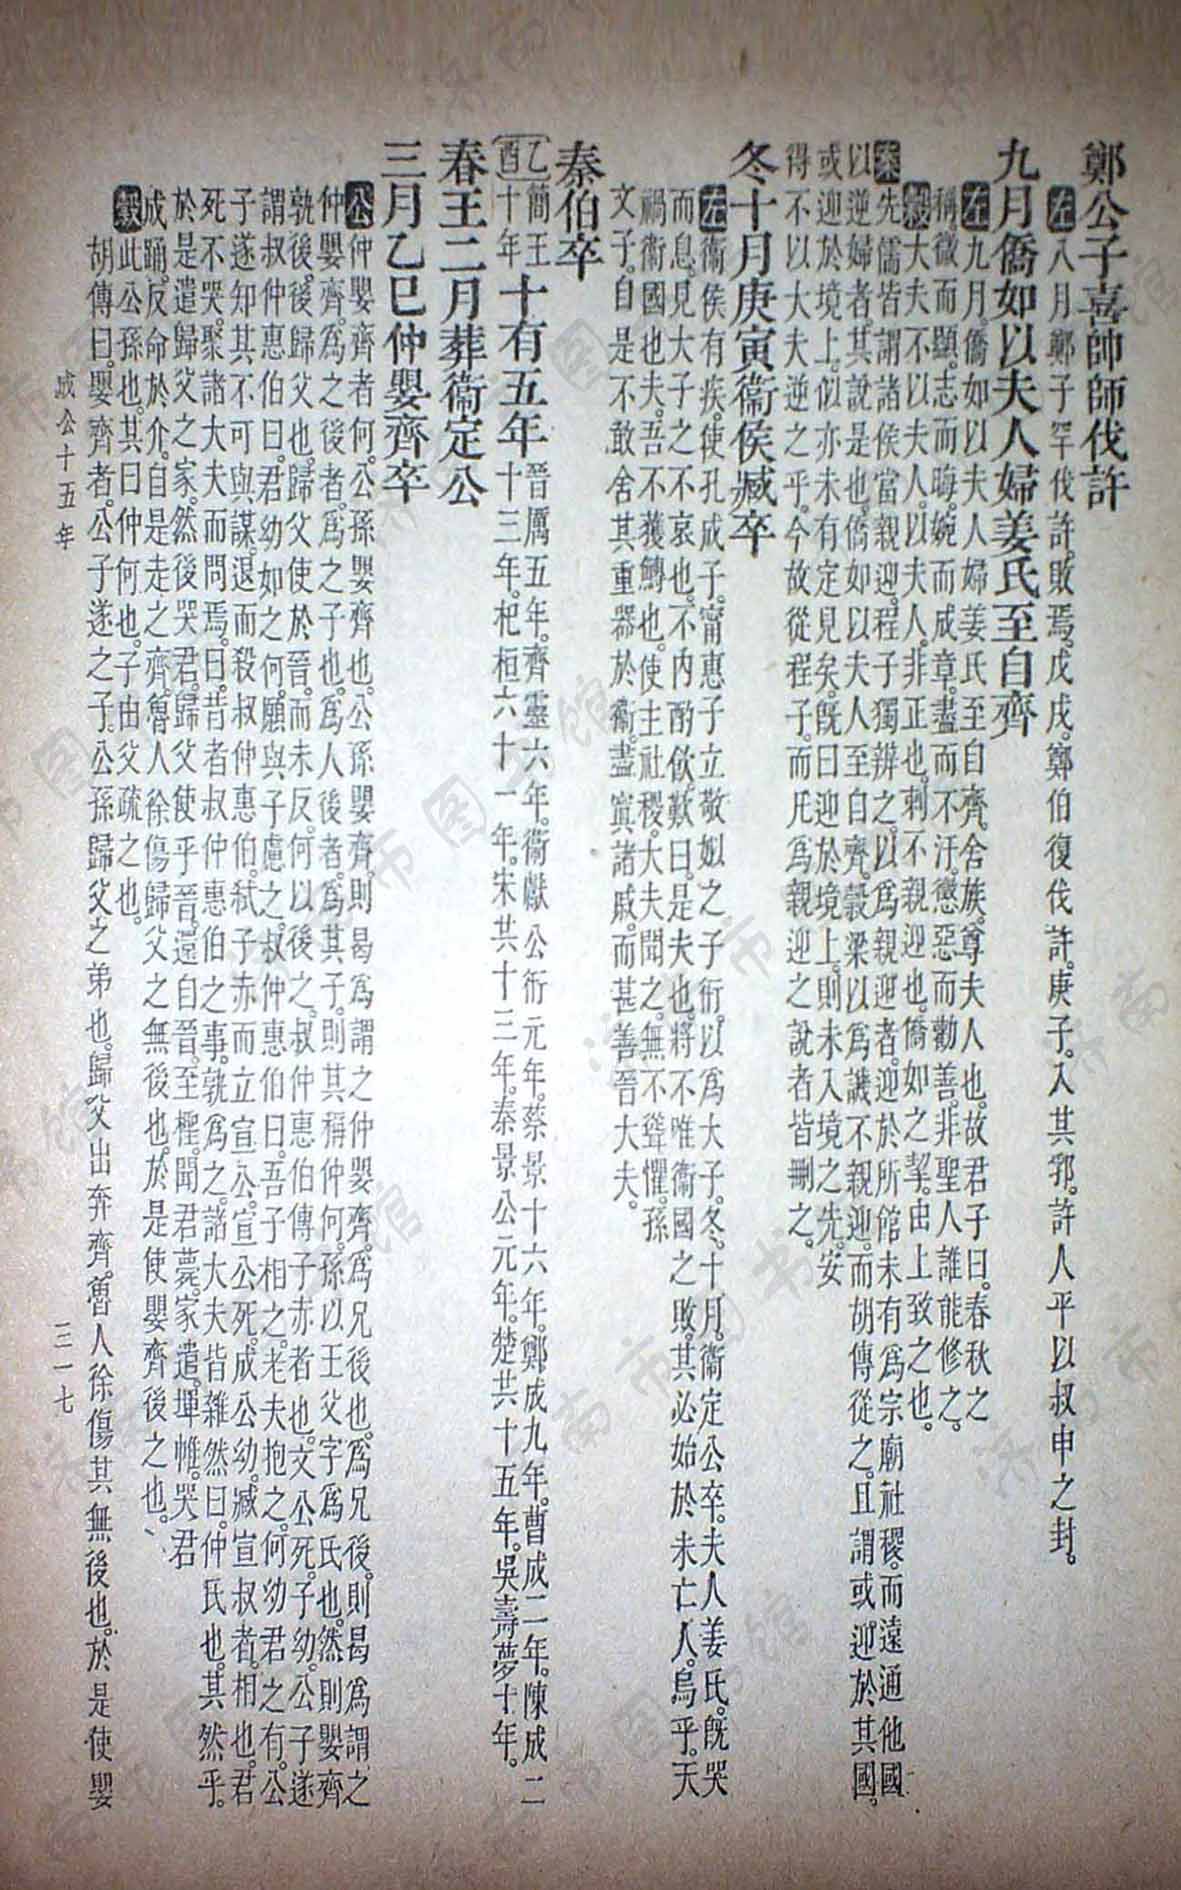 鄭公子喜帥師伐許
左八月鄭子罕伐許。敗焉。戊戌。鄭伯復伐許。庚子。入其郛。許人平以叔申之封。
九月僑如以夫人婦姜氏至自齊
左九月。僑如以夫人婦姜氏至自齊。舍族。尊夫人也。故君子曰。春秋之
稱微而顯。志而晦。婉而成章。盡而不汙。懲惡而勸善。非聖人誰能修之。
穀大夫不以夫人。以夫人。非正也。刺不親迎也。僑如之挈。由上致之也。
案先儒皆謂諸侯當親迎。程子獨辨之。以爲親迎者。迎於所館。未有爲宗廟社稷。而遠通他國
以逆婦者。其說是也。僑如以夫人至自齊。穀梁以爲譏不親迎。而胡傳從之。且謂或迎於其國。
或迎於境上。似亦未有定見矣。旣曰迎於境上。則未入境之先。安
得不以大夫逆之乎。今故從程子。而凡爲親迎之說者皆刪之。
冬十月庚寅衞侯臧卒
左衞侯有疾。使孔成子。甯惠子立敬姒之子衎。以爲大子。冬。十月。衞定公卒。夫人姜氏。旣哭
而息。見大子之不哀也。不內酌飮。歎曰。是夫也。將不唯衞國之敗。其必始於未亡人。烏乎。天
禍衞國也夫。吾不獲鱄也。使主社稷。大夫聞之。無不聳懼。孫
文子。自是不敢舍其重器於衞。盡寘諸戚。而甚善晉大夫。
秦伯卒
乙酉簡王十年十有五年晉厲五年。齊靈六年。衞獻公衎元年。蔡景十六年。鄭成九年。曹成二年。陳成二
十三年。杞桓六十一年。宋共十三年。秦景公元年。楚共十五年。吳壽夢十年。
春王二月葬衞定公
三月乙巳仲嬰齊卒
公仲嬰齊者何。公孫嬰齊也。公孫嬰齊。則曷爲謂之仲嬰齊。爲兄後也。爲兄後。則曷爲謂之
仲嬰齊。爲人後者。爲之子也。爲人後者。爲其子。則其稱仲何。孫以王父字爲氏也。然則嬰齊
孰後。後歸父也。歸父使於晉。而未反。何以後之。叔仲惠伯傳子赤者也。文公死。子幼。公子遂
謂叔仲惠伯曰。君幼如之何。願與子慮之。叔仲惠伯曰。吾子相之。老夫抱之。何幼君之有。公
子遂知其不可與謀。退而殺叔仲惠伯。弑子赤而立宣公。宣公死。成公幼。臧宣叔者。相也。君
死不哭。聚諸大夫而問焉。曰。昔者叔仲惠伯之事。孰爲之。諸大夫皆雜然曰。仲氏也。其然乎。
於是遣歸父之家。然後哭君。歸父使乎晉。還自晉。至檉。聞君薨。家遣。墠帷。哭君
成踊。反命於介。自是走之齊。魯人徐傷歸父之無後也。於是使嬰齊後之也。
穀此公孫也。其曰仲何也。子由父疏之也。
胡傳曰。嬰齊者。公子遂之子。公孫歸父之弟也。歸父出奔齊。魯人徐傷其無後也。於是使嬰
成公十五年
三一七